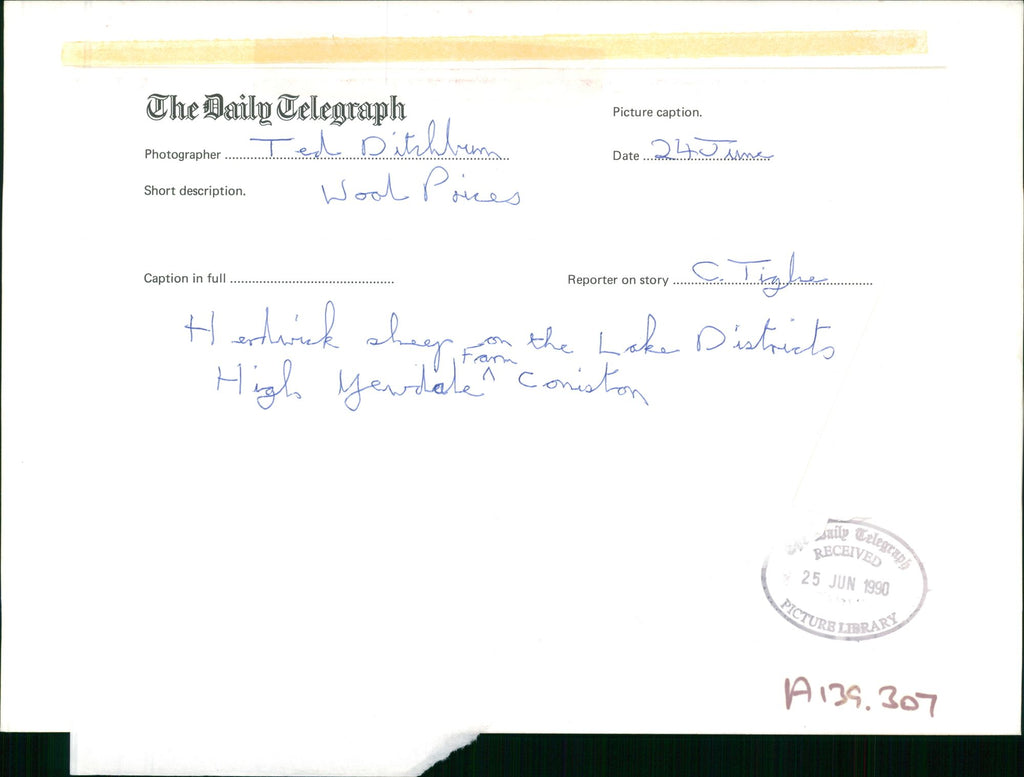 The Daily Telegraph
Picture caption.
Photographer Ted Ditchburn
Date 24 June
Short description. Wool Prices
Caption in full
Reporter on story C. Tighe
Herdwick sheep on the Lake Districts
High Yewdale Farm Coniston
The Daily Telegraph
RECEIVED
25 JUN 1990
PICTURE LIBRARY
A139.307